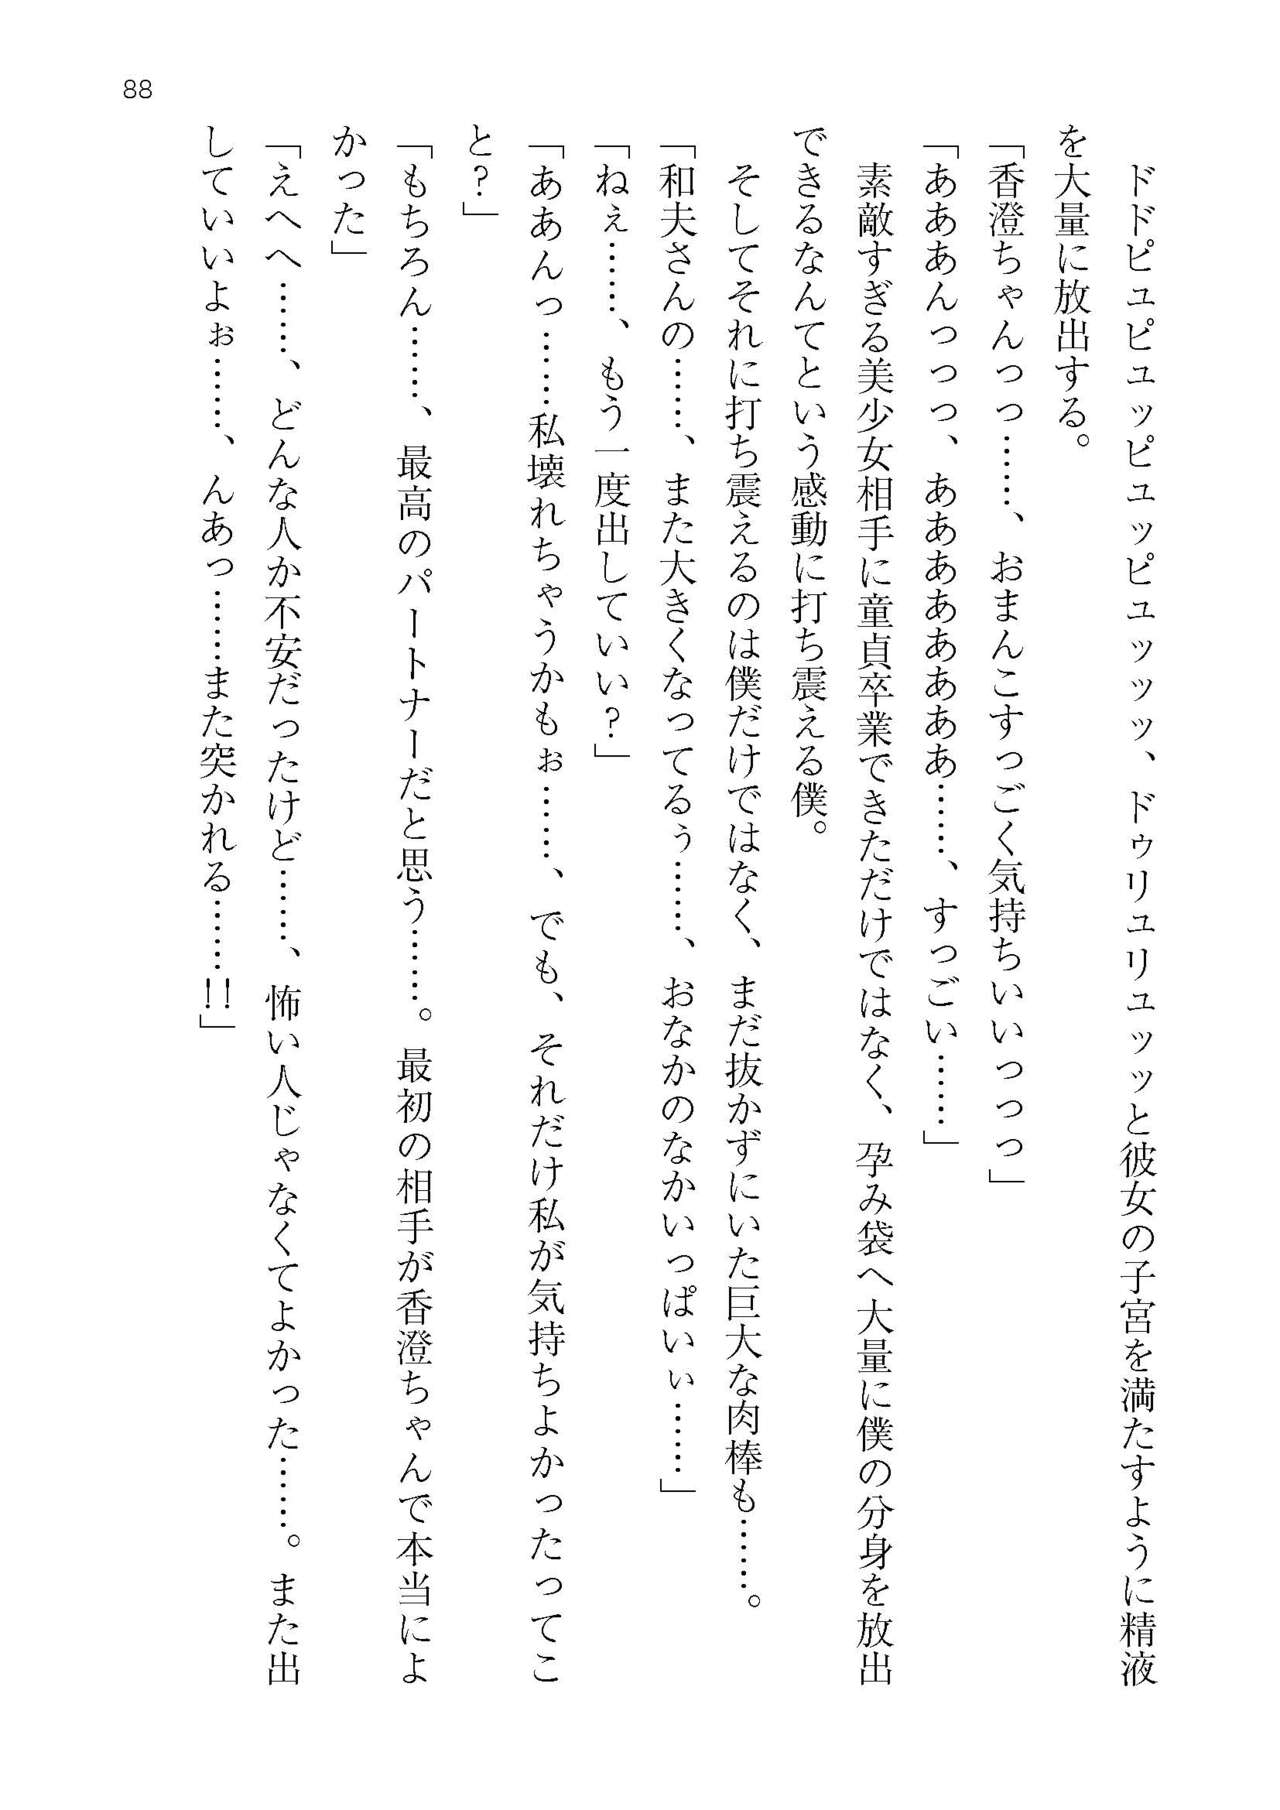 88
ドドピュピュッピュッピュッッッ、ドゥリュリュッッと彼女の子宮を満たすように精液
を大量に放出する。
「香澄ちゃんっっ……、おまんこすっごく気持ちいいっっっ」
「あああんっっっ、ああああああああ……、すっごい……」
素敵すぎる美少女相手に童貞卒業できただけではなく、孕み袋へ大量に僕の分身を放出
できるなんてという感動に打ち震える僕。
そしてそれに打ち震えるのは僕だけではなく、まだ抜かずにいた巨大な肉棒も……。
「和夫さんの……、また大きくなってるぅ……、おなかのなかいっぱいぃ……」
「ねぇ……、もう一度出していい？」
「ああんっ……私壊れちゃうかもぉ……、でも、それだけ私が気持ちよかったってこ
と？」
「もちろん……、最高のパートナーだと思う……。最初の相手が香澄ちゃんで本当によ
かった」
「えへへ……、どんな人か不安だったけど……、怖い人じゃなくてよかった……。また出
していいよぉ……、んあっ……また突かれる……!!」